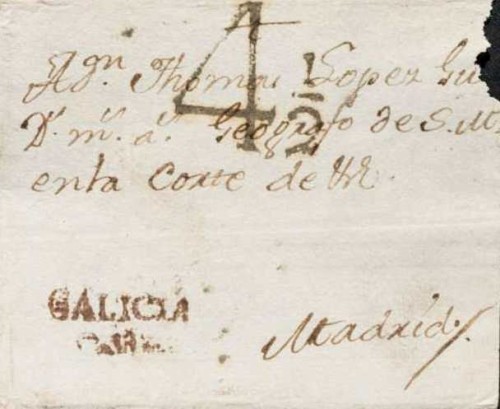 4 1/2
A Dn. Thomas Lopez Gu
Ds. ms. as. Geografo de S. M.
enla Corte de
GALICIA
Madrid